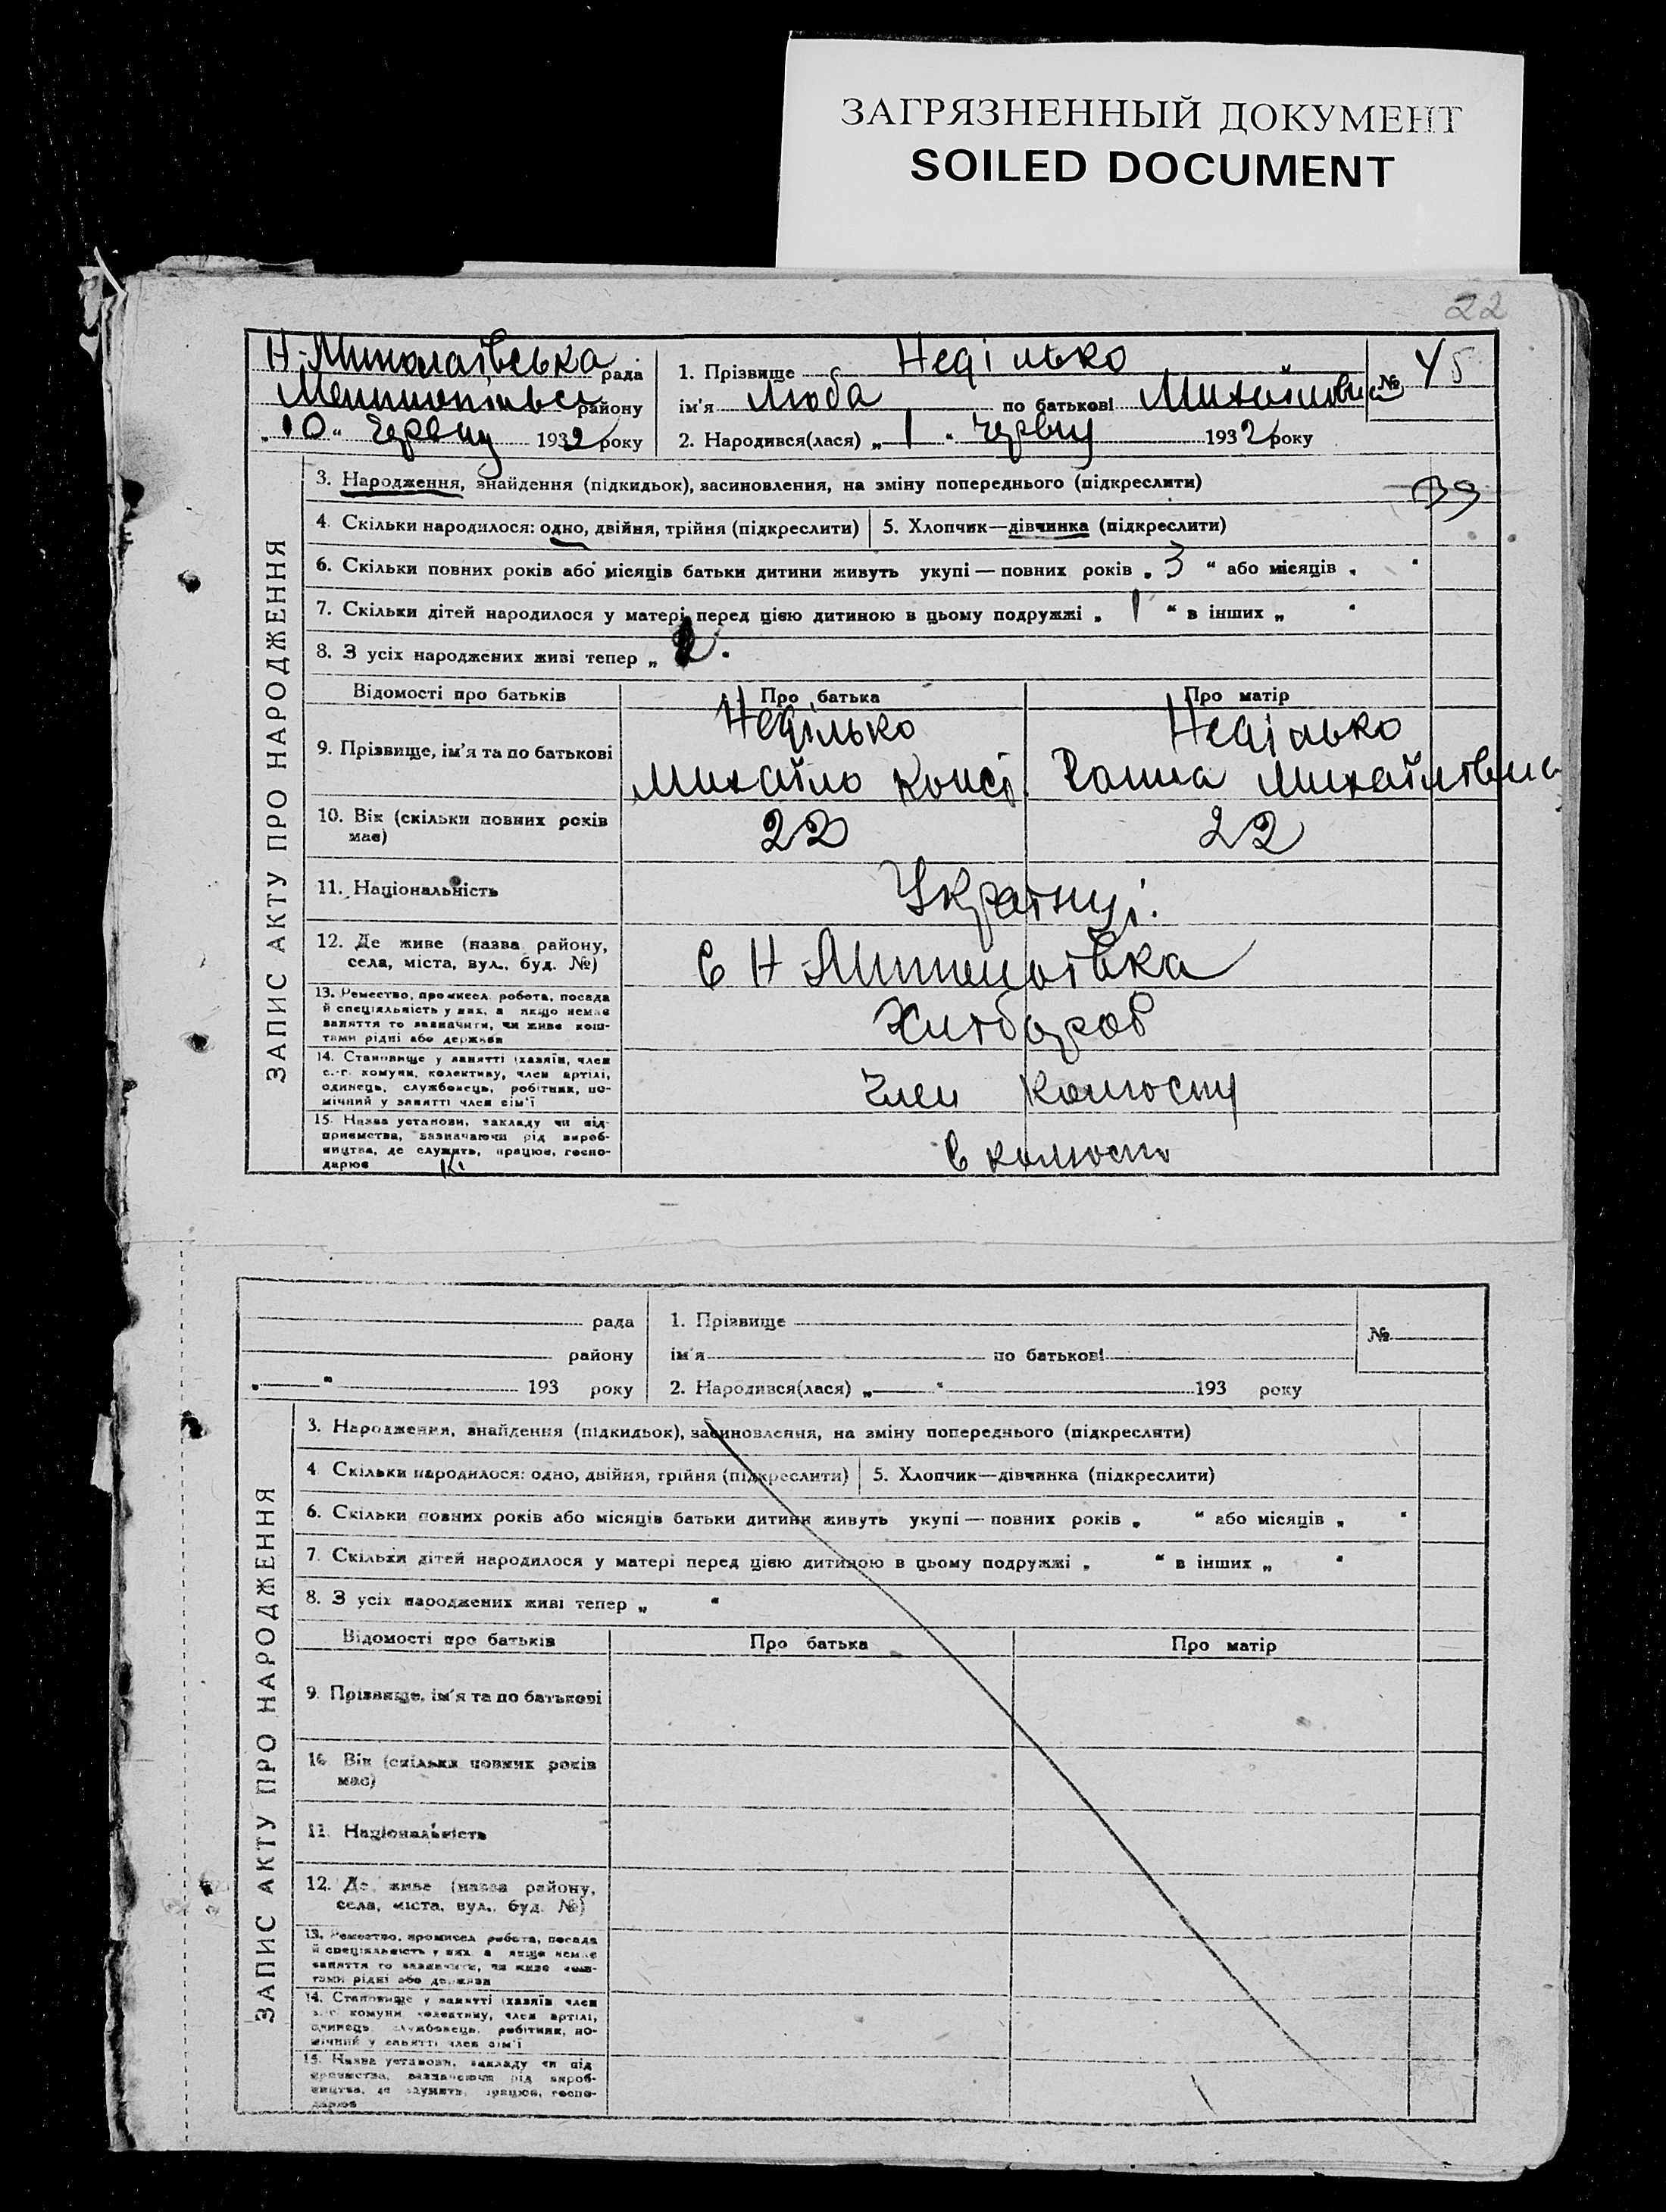 ЗАГРЯЗНЕННЫЙ ДОКУМЕНТ
SOILED DOCUMENT
22
Н-Миколаївська рада
району
"10" червня 1932 року
1. Прізвище Неділько
ім'я Люба по батькові Михайлівна
2. Народився(лася) „1" червня 1932 року
№ 45
ЗАПИС АКТУ ПРО НАРОДЖЕННЯ
3. Народження, знайдення (підкидьок), засиновлення, на зміну попереднього (підкреслити)
39
4. Скільки народилося: одно, двійня, трійня (підкреслити) 5. Хлопчик—дівчинка (підкреслити)
6. Скільки повних років або місяців батьки дитини живуть укупі — повних років „ 3 " або місяців „ "
7. Скільки дітей народилося у матері перед цією дитиною в цьому подружжі „ 1 " в інших „ "
8. З усіх народжених живі тепер „ 2 "
Відомості про батьків Про батька Про матір
9. Прізвище, ім'я та по батькові
Неділько
Михайло Конст.
Неділько
Ганна Михайлівна
10. Вік (скільки повних років
має)
22 22
11. Національність Українці
12. Де живе (назва району,
села, міста, вул., буд. №)
с Н-Миколаївка
13. Ремество, промисел, робота, посада
й спеціяльність у них, а якщо немає
заняття то зазначити, чи живе кош-
тами рідні або держави
Хлібороб
14. Становище у занятті (хазяїн, член
с.-г. комуни, колективу, член артілі,
одинець, службовець, робітник, по-
мічний у занятті член сім'ї
Член колгоспу
15. Назва установи, закладу чи під-
приємства, зазначаючи рід вироб-
ництва, де служить, працює, госпо-
дарює
В колгоспі
рада
району
„ " 193 року
1. Прізвище
ім'я по батькові
2. Народився(лася) „ " 193 року
№
ЗАПИС АКТУ ПРО НАРОДЖЕННЯ
3. Народження, знайдення (підкидьок), засиновлення, на зміну попереднього (підкреслити)
4. Скільки народилося: одно, двійня, трійня (підкреслити) 5. Хлопчик—дівчинка (підкреслити)
6. Скільки повних років або місяців батьки дитини живуть укупі — повних років „ " або місяців „ "
7. Скільки дітей народилося у матері перед цією дитиною в цьому подружжі „ " в інших „ "
8. З усіх народжених живі тепер „ "
Відомості про батьків Про батька Про матір
9. Прізвище, ім'я та по батькові
10. Вік (скільки повних років
має)
11. Національність
12. Де живе (назва району,
села, міста, вул., буд. №)
13. Ремество, промисел, робота, посада
й спеціяльність у них, а якщо немає
заняття то зазначити, чи живе кош-
тами рідні або держави
14. Становище у занятті (хазяїн, член
с.-г. комуни, колективу, член артілі,
одинець, службовець, робітник, по-
мічний у занятті член сім'ї
15. Назва установи, закладу чи під-
приємства, зазначаючи рід вироб-
ництва, де служить, працює, госпо-
дарює